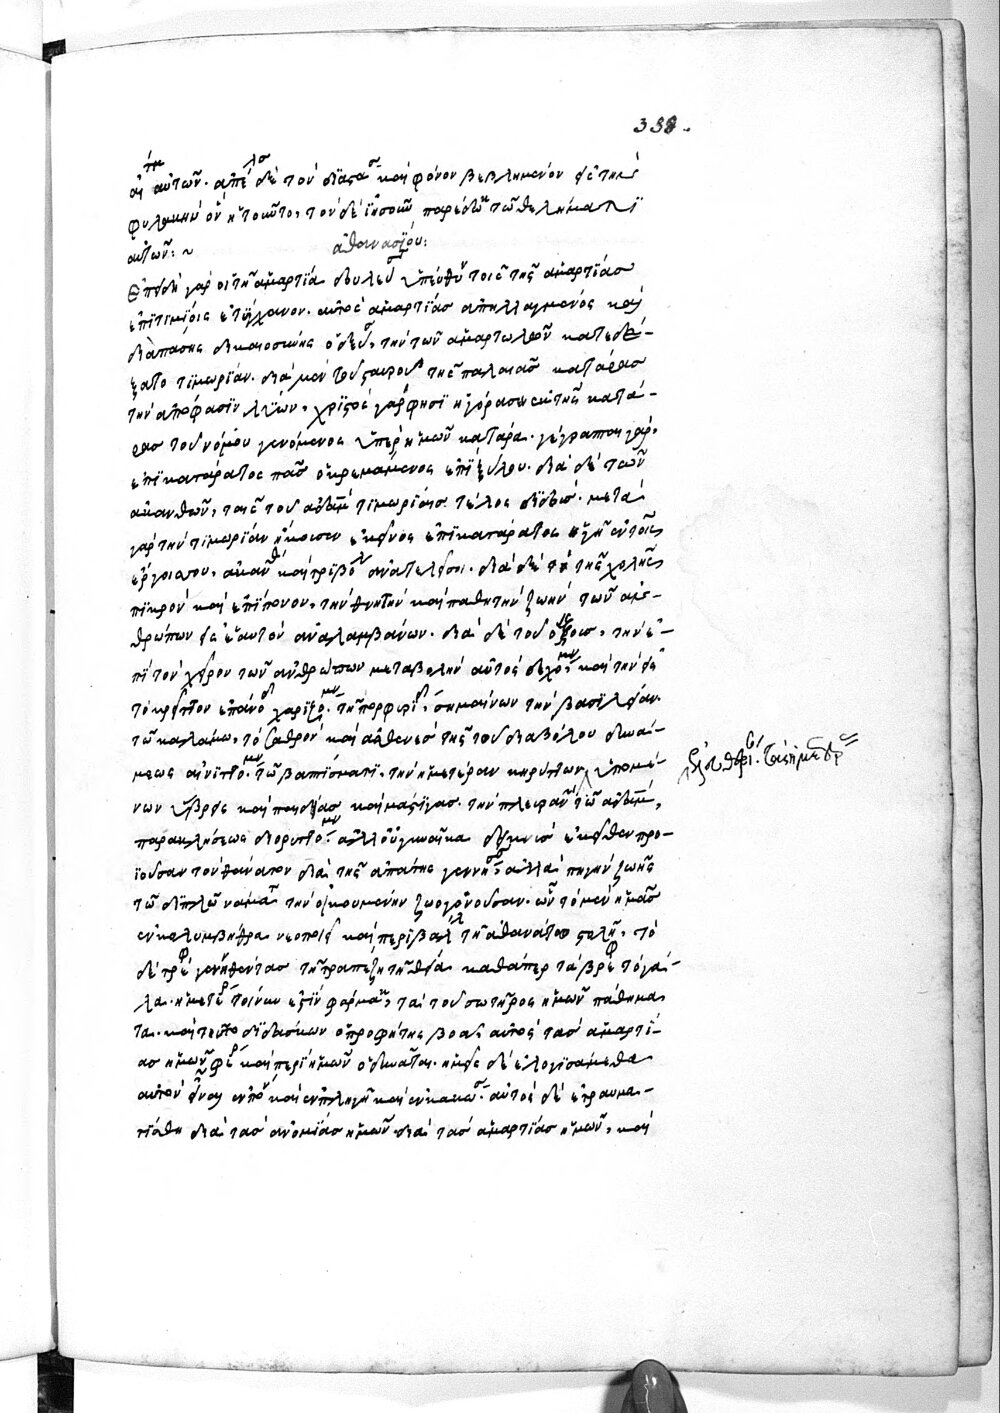 338.
αἴτημα αὐτῶν. ἀπέλυσε δὲ τὸν διὰ στάσιν καὶ φόνον βεβλημένον εἰς τὴν
φυλακὴν ὃν ᾐτοῦντο, τὸν δὲ ἰησοῦν παρέδωκε τῶ θελήματι
αὐτῶν: ~
ἀθανασίου:
ἐπειδὴ γὰρ οἱ τῆ ἁμαρτία δουλεύοντες ὑπεύθυνοι τοῖς τῆς ἁμαρτίας
ἐπιτιμίοις ἐτύγχανον. αὐτὸς ἁμαρτίας ἀπηλλαγμένος καὶ
διὰ πάσης δικαιοσύνης ὁδεύσας, τὴν τῶν ἁμαρτωλῶν κατεδέ-
ξατο τιμωρίαν. διὰ μὲν τοῦ σταυροῦ τῆς παλαιᾶς κατάρας
τὴν ἀπόφασιν λύων, χριστὸς γάρ φησιν ἡμᾶς ἐξηγόρασεν ἐκ τῆς κατά-
ρας τοῦ νόμου γενόμενος ὑπὲρ ἡμῶν κατάρα. γέγραπται γάρ.
ἐπικατάρατος πᾶς ὁ κρεμάμενος ἐπὶ ξύλου. διὰ δὲ τῶν
ἀκανθῶν, ταῖς τοῦ ἀδὰμ τιμωρίαις τέλος διδούς. μετὰ
γὰρ τὴν τιμωρίαν ἤκουσεν ἐκεῖνος ἐπικατάρατος ἡ γῆ ἐν τοῖς
ἔργοις σου, ἀκάνθας καὶ τριβόλους ἀνατελεῖ σοι. διὰ δὲ τῆς χολῆς
πικρὸν καὶ ἐπίπονον, τὴν θνητὴν καὶ παθητὴν ζωὴν τῶν ἀν-
θρώπων εἰς ἑαυτὸν ἀναλαμβάνων. διὰ δὲ τοῦ ὄξους, τὴν ἐ-
πὶ τὸ χεῖρον τῶν ἀνθρώπων μεταβολὴν αὐτὸς δεχόμενος καὶ τὴν εἰς
τὸ κρεῖττον ἐπάνοδον χαριζόμενος. τῆ πορφυρίδι, σημαίνων τὴν βασιλείαν.
τῶ καλάμω, τὸ σαθρὸν καὶ ἀσθενὲς τῆς τοῦ διαβόλου δυνά-
μεως αἰνιττόμενος. τῶ ῥαπίσματι, τὴν ἡμετέραν κηρύττων ὑπομέ-
νων ὕβρεις καὶ παιδείας καὶ μάστιγας. τὴν πλευρὰν τῶ ἀδὰμ,
παραπλησίως διορύττόμενος. ἀλλ' οὐ γυναῖκα δείκνυσιν ἐκεῖθεν προ-
ϊοῦσαν τὸν θάνατον διὰ τῆς ἀπάτης γεννήσασαν ἀλλὰ πηγὴν ζωῆς
τῶ διπλῶ νάματι τὴν οἰκουμένην ζωογονοῦσαν. ὧν τὸ μὲν ἡμᾶς
ἐν κολυμβήθρα νεοποιεῖ καὶ περιβάλλει τῆ ἀθανάτω στολῆ, τὸ
δὲ τρέφει γεννηθέντας τῆ τραπέζη τῆ θεία καθάπερ τὰ βρέφη τὸ γά-
λα. ἡμέτερα τοίνυν ἐστὶν φάρμακα, τὰ τοῦ σωτῆρος ἡμῶν παθήμα
τα. καὶ τοῦτο διδάσκων ὁ προφήτης βοᾶ, αὐτὸς τὰς ἁμαρτί-
ας ἡμῶν φέρει καὶ περὶ ἡμῶν ὀδυνᾶται. ἡμεῖς δὲ ἐλογισάμεθα
αὐτὸν εἶναι ἐν πόνω καὶ ἐν πληγῆ καὶ ἐν κακώσει. αὐτὸς δὲ ἐτραυμα-
τίσθη διὰ τὰς ἀνομίας ἡμῶν διὰ τὰς ἁμαρτίας ἡμῶν, καὶ